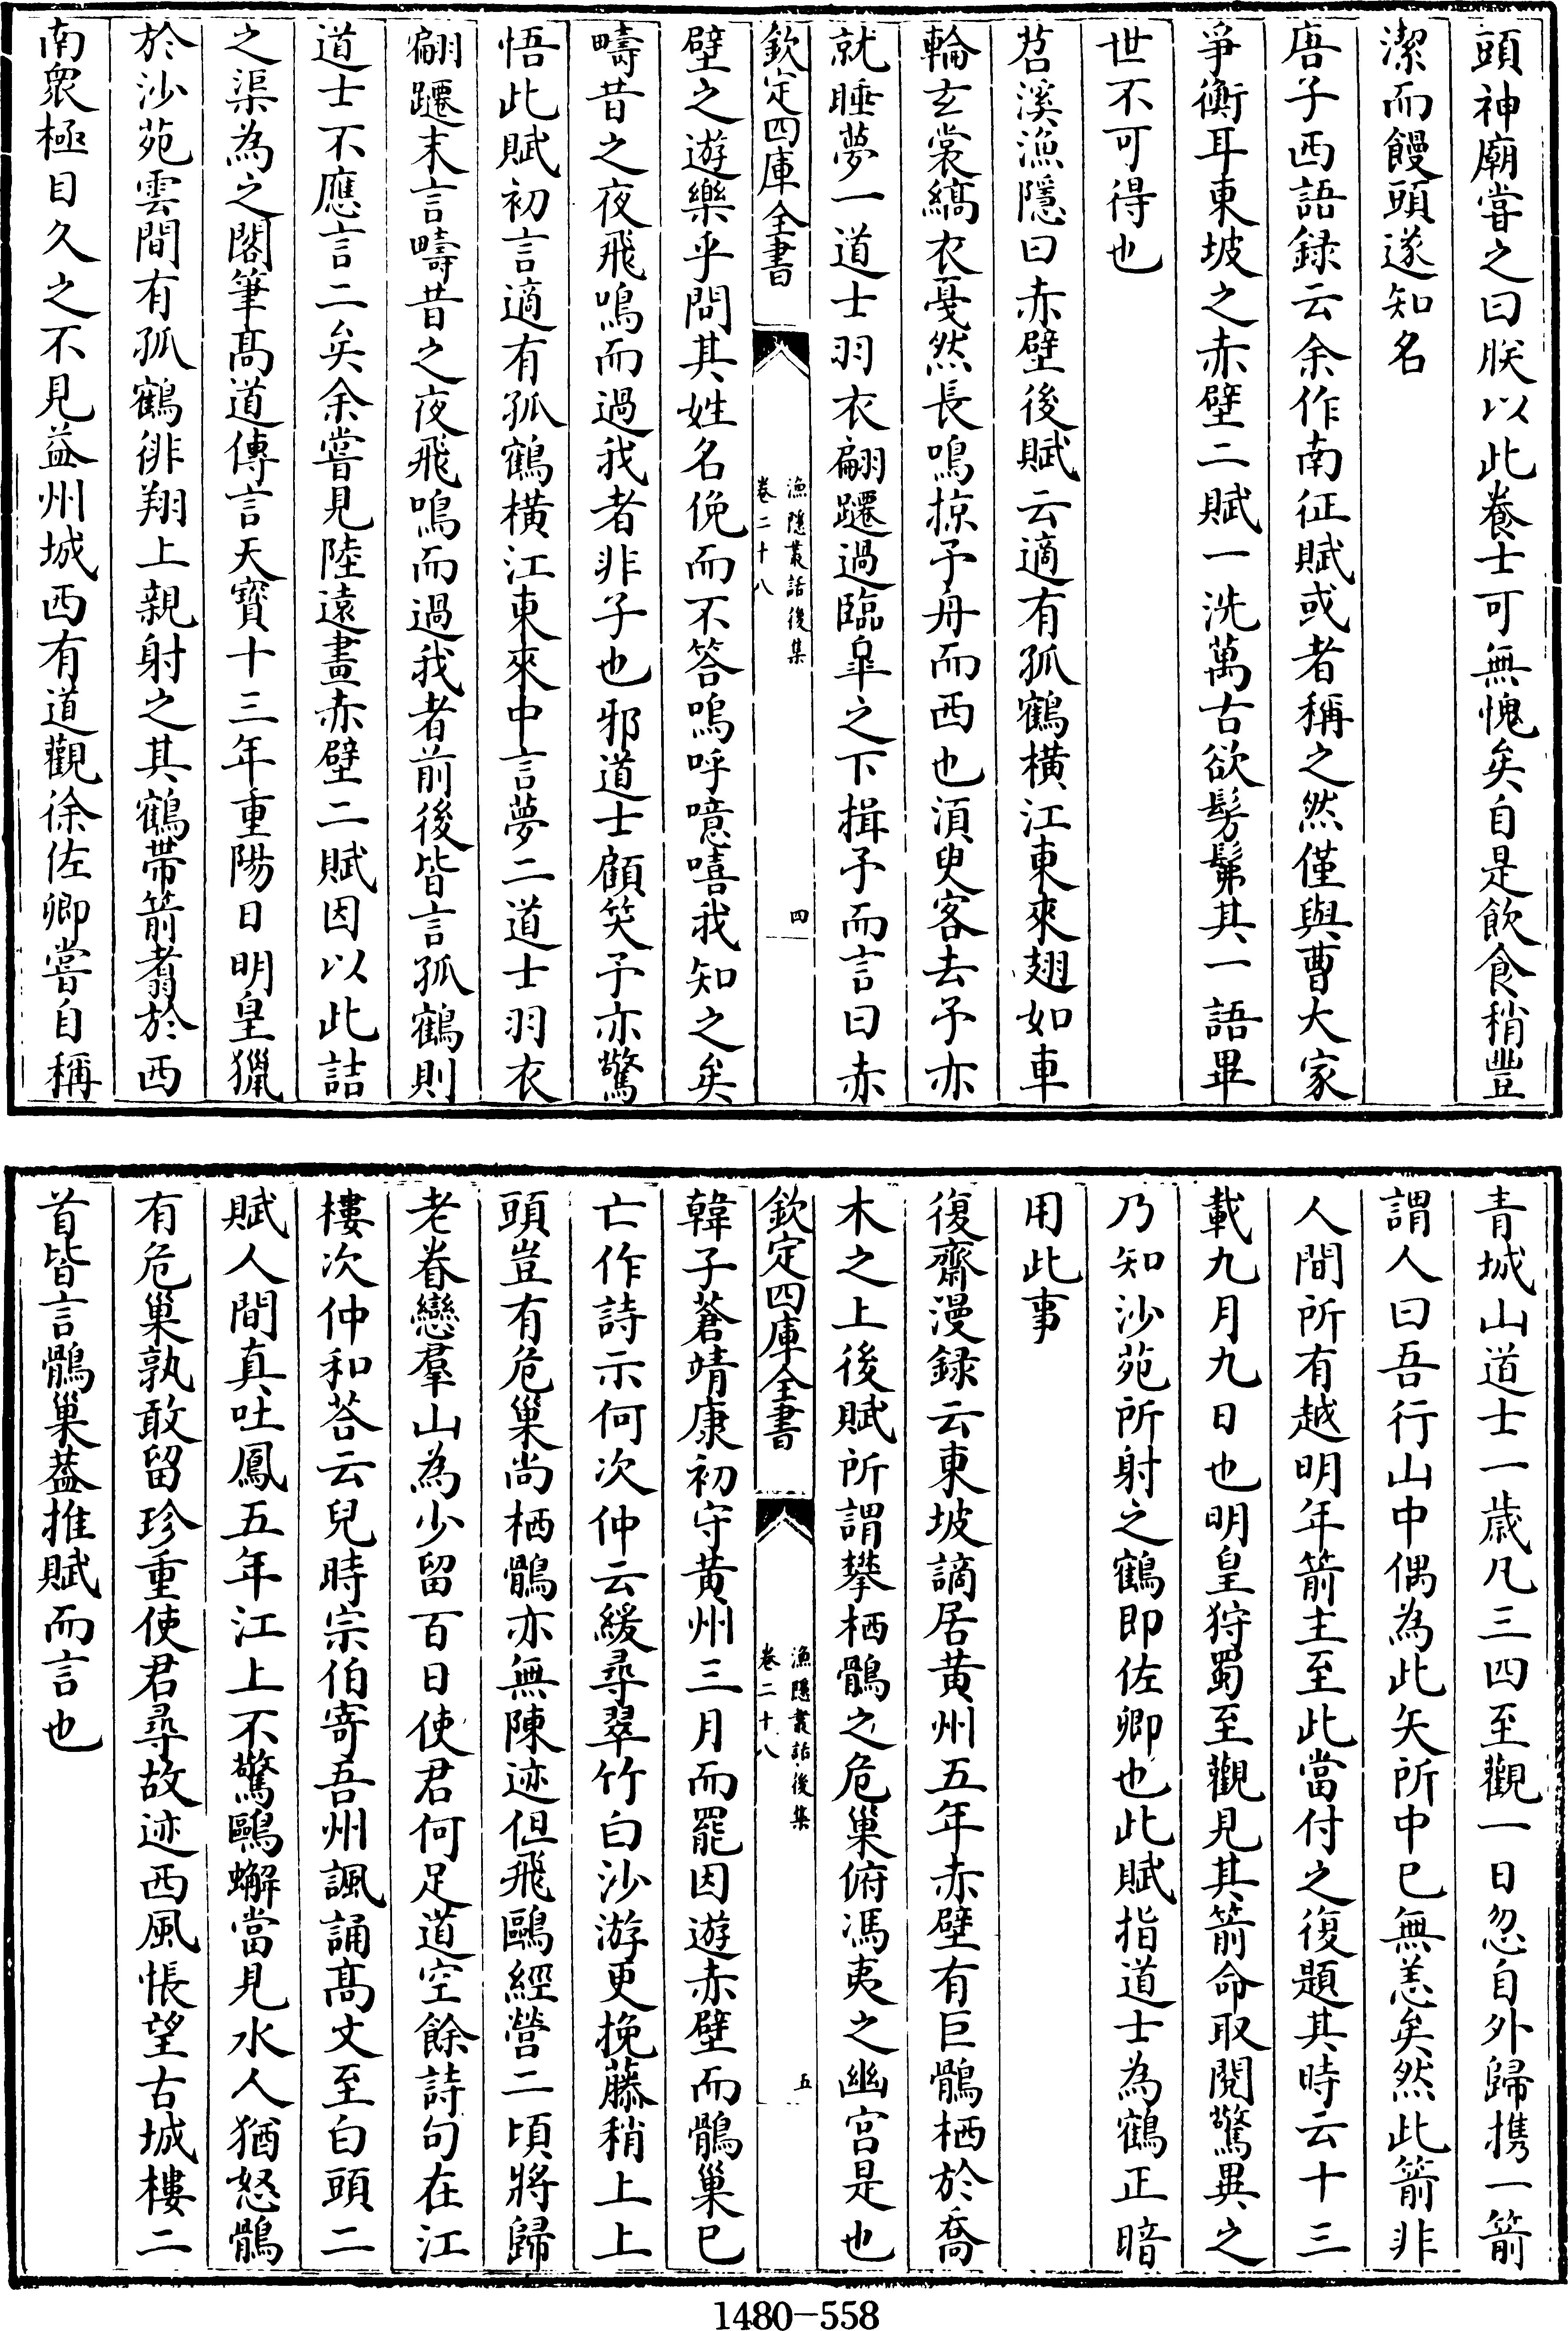 頭神廟嘗之曰朕以此養士可無愧矣自是飲食稍豐
潔而饅頭遂知名
唐子西語録云余作南征賦或者稱之然僅與曹大家
爭衡耳東坡之赤壁二賦一洗萬古欲髣髴其一語畢
世不可得也
苕溪漁隱曰赤壁後賦云適有孤鶴橫江東來翅如車
輪玄裳縞衣戛然長鳴掠予舟而西也須臾客去予亦
就睡夢一道士羽衣翩躚過臨臯之下揖予而言曰赤
欽定四庫全書
漁隱叢話後集
卷二十八
四
壁之遊樂乎問其姓名俛而不答嗚呼噫嘻我知之矣
疇昔之夜飛鳴而過我者非子也邪道士顧笑予亦驚
悟此賦初言適有孤鶴橫江東來中言夢二道士羽衣
翩躚末言疇昔之夜飛鳴而過我者前後皆言孤鶴則
道士不應言二矣余嘗見陸遠畫赤壁二賦因以此詰
之渠為之閣筆髙道傳言天寳十三年重陽日明皇獵
於沙苑雲間有孤鶴徘翔上親射之其鶴帶箭翥於西
南衆極目久之不見益州城西有道觀徐佐卿嘗自稱
青城山道士一歲凡三四至觀一日忽自外歸携一箭
謂人曰吾行山中偶為此矢所中已無恙矣然此箭非
人間所有越明年箭主至此當付之復題其時云十三
載九月九日也明皇狩蜀至觀見其箭命取閱驚異之
乃知沙苑所射之鶴即佐卿也此賦指道士為鶴正暗
用此事
復齋漫録云東坡謫居黄州五年赤壁有巨鶻栖於喬
木之上後賦所謂攀栖鶻之危巢俯馮夷之幽宫是也
欽定四庫全書
漁隱叢話後集
卷二十八
五
韓子蒼靖康初守黄州三月而罷因遊赤壁而鶻巢已
亡作詩示何次仲云緩尋翠竹白沙游更挽藤稍上上
頭豈有危巢尚栖鶻亦無陳迹但飛鷗經營二頃將歸
老眷戀羣山為少留百日使君何足道空餘詩句在江
樓次仲和荅云兒時宗伯寄吾州諷誦髙文至白頭二
賦人間真吐鳳五年江上不驚鷗蠏當見水人猶怒鶻
有危巢孰敢留珍重使君尋故迹西風悵望古城樓二
首皆言鶻巢葢推賦而言也
1480-558